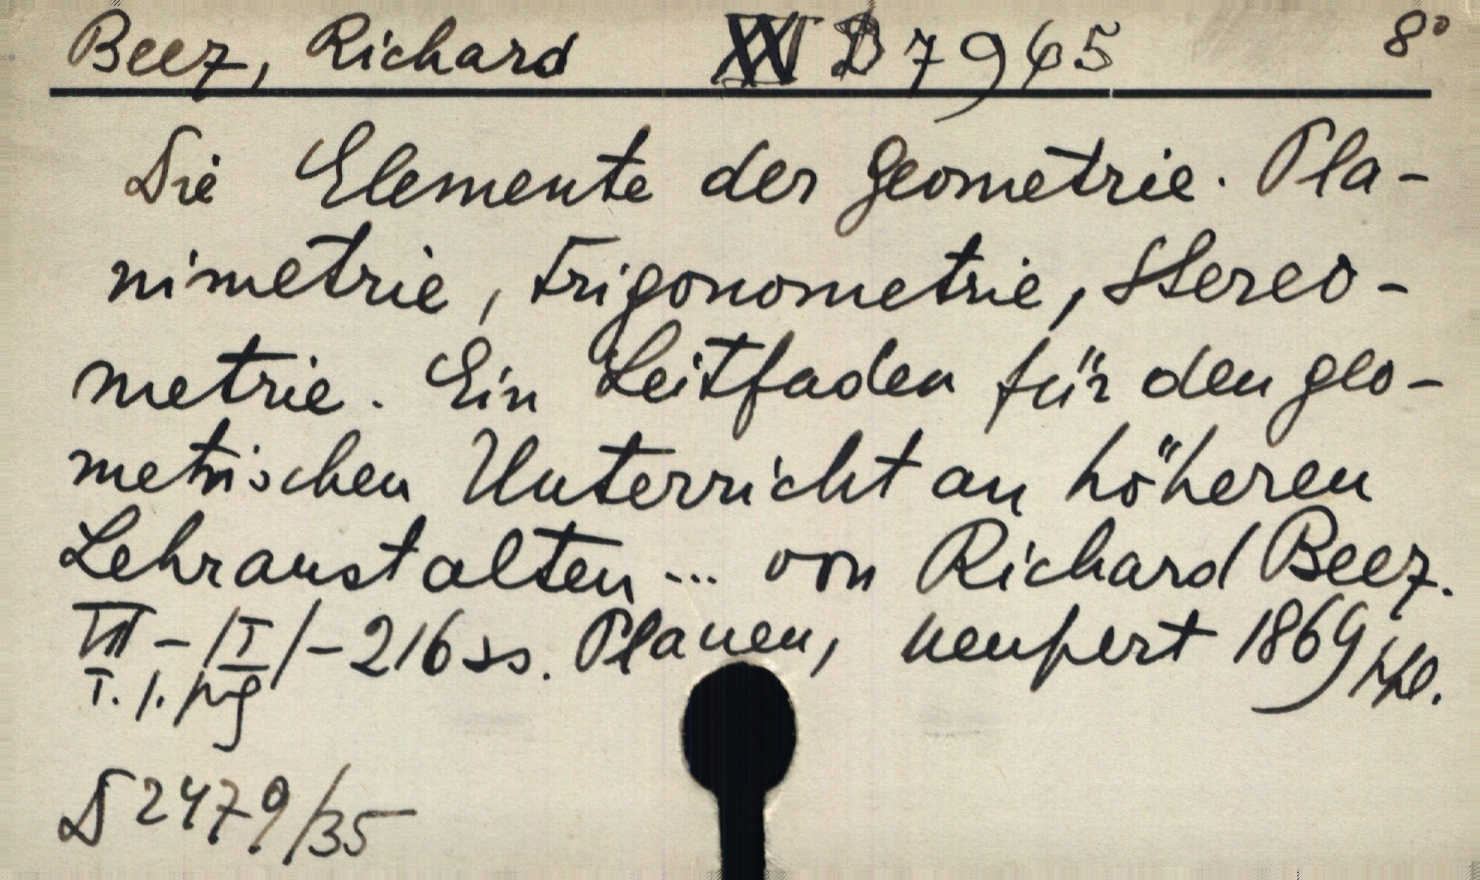 Beez, Richard XXV D 7965 8°
Die Elemente der Geometrie. Pla-
nimetrie, Trigonometrie, Stereo-
metrie. Ein Leitfaden für den geo-
metrischen Unterricht an höheren
Lehranstalten... von Richard Beez.
VIII-/I/-216 ss. Plauen, Neupert 1869
D 2479/35